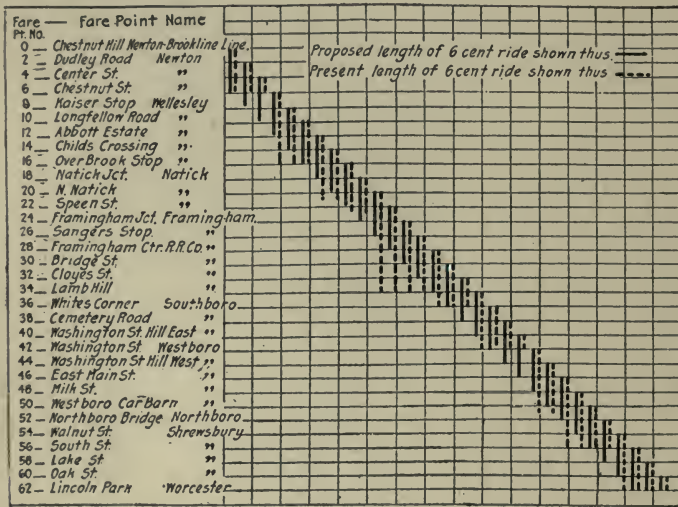 Fare — Fare Point Name
Pt. No.
0 — Chestnut Hill Newton-Brookline Line.
2 — Dudley Road Newton
4 — Center St. "
6 — Chestnut St. "
8 — Kaiser Stop Wellesley
10 — Longfellow Road "
12 — Abbott Estate "
14 — Childs Crossing "
16 — OverBrook Stop "
18 — Natick Jct. Natick
20 — N. Natick "
22 — Speen St. "
24 — Framingham Jct. Framingham
26 — Sangers Stop. "
28 — Framingham Ctr. R.R.Co. "
30 — Bridge St. "
32 — Cloyes St. "
34 — Lamb Hill "
36 — Whites Corner Southboro
38 — Cemetery Road "
40 — Washington St. Hill East "
42 — Washington St. Westboro
44 — Washington St Hill West "
46 — East Main St. "
48 — Milk St. "
50 — Westboro Car Barn "
52 — Northboro Bridge Northboro
54 — Walnut St. Shrewsbury
56 — South St. "
58 — Lake St. "
60 — Oak St. "
62 — Lincoln Park Worcester
Proposed length of 6 cent ride shown thus
Present length of 6 cent ride shown thus